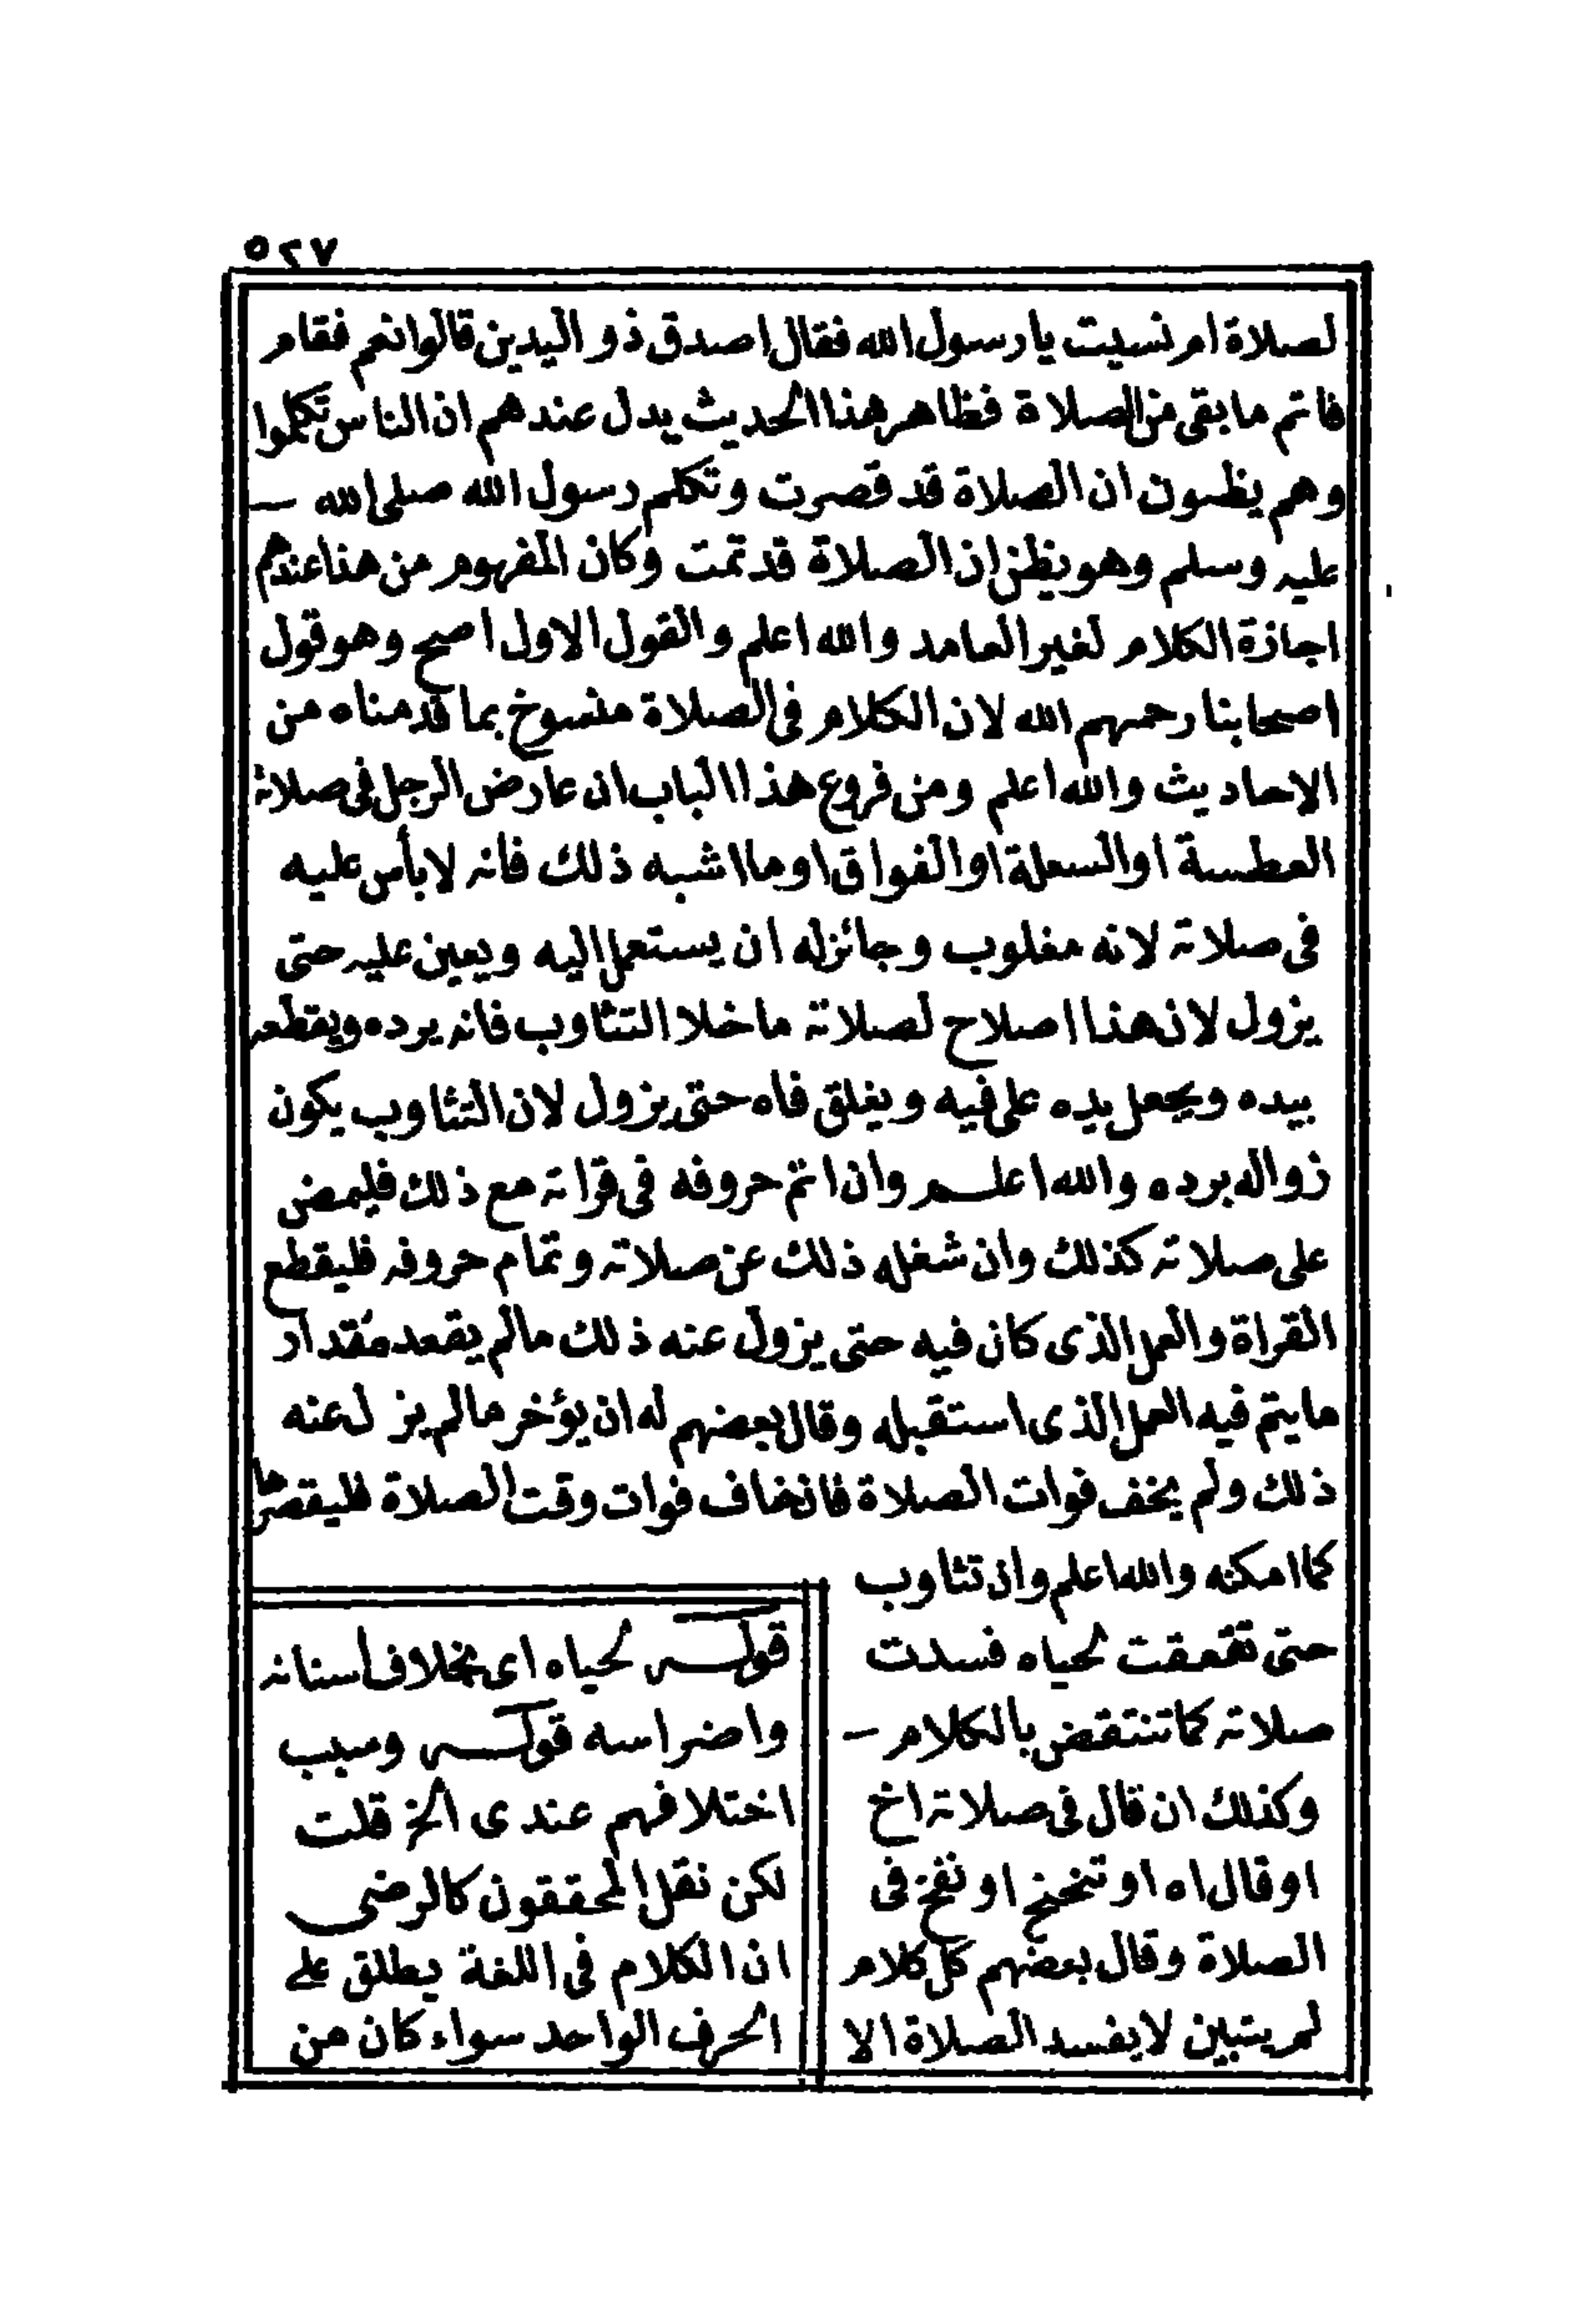 ٥٢٧
لصلاة ام نسيت يا رسول الله فقال اصدق ذو اليدين قالوا نعم فقام
فاتم ما بقى من الصلاة فظاهر هذا الحديث يدل عندهم ان الناس تكلموا
وهم يظنون ان الصلاة قد قصرت وتكلم رسول الله صلى الله
عليه وسلم وهو يظن ان الصلاة قد تمت وكان المفهوم من هذا عندهم
اجازة الكلام لغير العامد والله اعلم والقول الاول اصح وهو قول
اصحابنا رحمهم الله لان الكلام فى الصلاة منسوخ بما قدمناه من
الاحاديث والله اعلم ومن فروع هذا الباب ان عارض الرجل فى صلاته
العطسة او السعلة او الفواق او ما اشبه ذلك فانه لا بأس عليه
فى صلاته لانه مغلوب وجائز له ان يستعمل اليه ويعين عليه حتى
يزول لان هذا اصلاح لصلاته ما خلا التثاوب فانه يرده ويقطعه
بيده ويجعل يده على فيه ويغلق فاه حتى يزول لان التثاوب يكون
زواله برده والله اعلم وان اتم حروفه فى قراته مع ذلك فليمض
على صلاته كذلك وان شغله ذلك عن صلاته وتمام حروفه فليقطع
القراة والعمل الذى كان فيه حتى يزول عنه ذلك ما لم يقعد مقدار
ما يتم فيه العمل الذى استقبله وقال بعضهم له ان يؤخر ما لم يزل عنه
ذلك ولم يخف فوات الصلاة فان خاف فوات وقت الصلاة فليقضها
كما امكنه والله اعلم وان تثاوب
حتى تقعقعت لحياه فسدت
صلاته كما تنتقض بالكلام
وكذلك ان قال فى صلاته اخ
او قال اه او تنخنخ او نفخ فى
الصلاة وقال بعضهم كل كلام
لم يتبين لا يفسد الصلاة الا
قوله لحياه اى بخلاف اسنانه
واضراسه قوله وسبب
اختلافهم عندى الخ قلت
لكن نقل المحققون كالرضى
ان الكلام فى اللغة يطلق على
الحرف الواحد سواء كان من